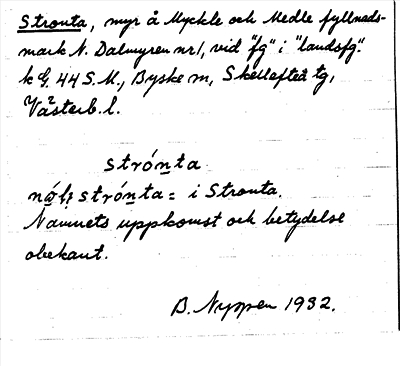 Stronta, myr å Myckle och Medle fyllnads-
mark N. Dalmyren nr 1, vid "fg" i "landsfg".
k G. 44 S. M., Byske m, Skellefteå tg,
Västerb. l.
strónta
strónta = i Stronta.
Namnets uppkomst och betydelse
obekant.
B. Nyppen 1932.